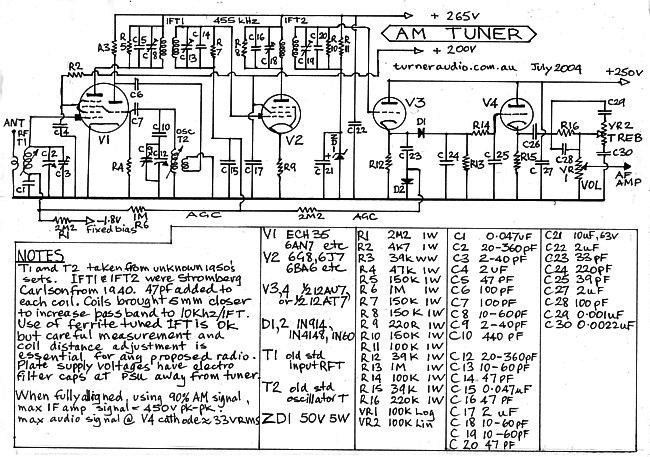 + 265V
+ 200V
AM TUNER
turneraudio.com.au July 2004
+250V
IFT1 455 kHz IFT2
R3
R5
C5
C8
C13
C14
R7
R8
C16
C18
C19
C20
R10
R11
R2
C6
C7
ANT
RF
T1
C4
V1
C10
OSC
T2
V2
C22
V3
D1
V4
R14
C29
R16
VR2
TREB
C30
C28
VR1
VOL
AF
AMP
C1
C2
C3
R4
C9
C15
C17
R9
C21
R12
C23
D2
C24
R13
C25
R15
C26
C27
-1.8V
Fixed bias
2M2
R1
1M
R6
AGC
2M2
AGC
NOTES
T1 and T2 taken from unknown 1950's
sets. IFT1 & IFT2 were Stromberg
Carlson from 1940. 47pf added to
each coil. Coils brought 5mm closer
to increase pass band to 10KHz/IFT.
Use of ferrite tuned IFT is OK
but careful measurement and
coil distance adjustment is
essential for any proposed radio.
Plate supply voltages have electro
filter caps at PSU away from tuner.
When fully aligned, using 90% AM signal,
max IF amp signal = 450V pk-pk.
max audio signal @ V4 cathode ≈ 33VRMS
V1 ECH35
6AN7 etc
V2 6G8, 6J7
6BA6 etc
V3,4 1/2 12AU7,
or 1/2 12AT7
D1,2 1N914,
1N4148, 1N60
T1 old std
input RFT
T2 old std
oscillator T
ZD1 50V 5W
R1 2M2 1W
R2 4K7 1W
R3 39K WW
R4 47K 1W
R5 150K 1W
R6 1M 1W
R7 150K 1W
R8 150K 1W
R9 220R 1W
R10 150K 1W
R11 100K 1W
R12 39K 1W
R13 1M 1W
R14 100K 1W
R15 39K 1W
R16 220K 1W
VR1 100K Log
VR2 100K Lin
C1 0.047uF
C2 20-360pF
C3 2-40pF
C4 2uF
C5 47 PF
C6 47 PF
C7 100PF
C8 10-60PF
C9 2-40PF
C10 440 PF
C12 20-360PF
C13 10-60PF
C14 47PF
C15 0.047uF
C16 47PF
C17 2uF
C18 10-60PF
C19 10-60PF
C20 47 PF
C21 10uF, 63V
C22 2uF
C23 33PF
C24 220PF
C25 39PF
C26 2uF
C27 2uF
C28 100PF
C29 0.001uF
C30 0.0022uF